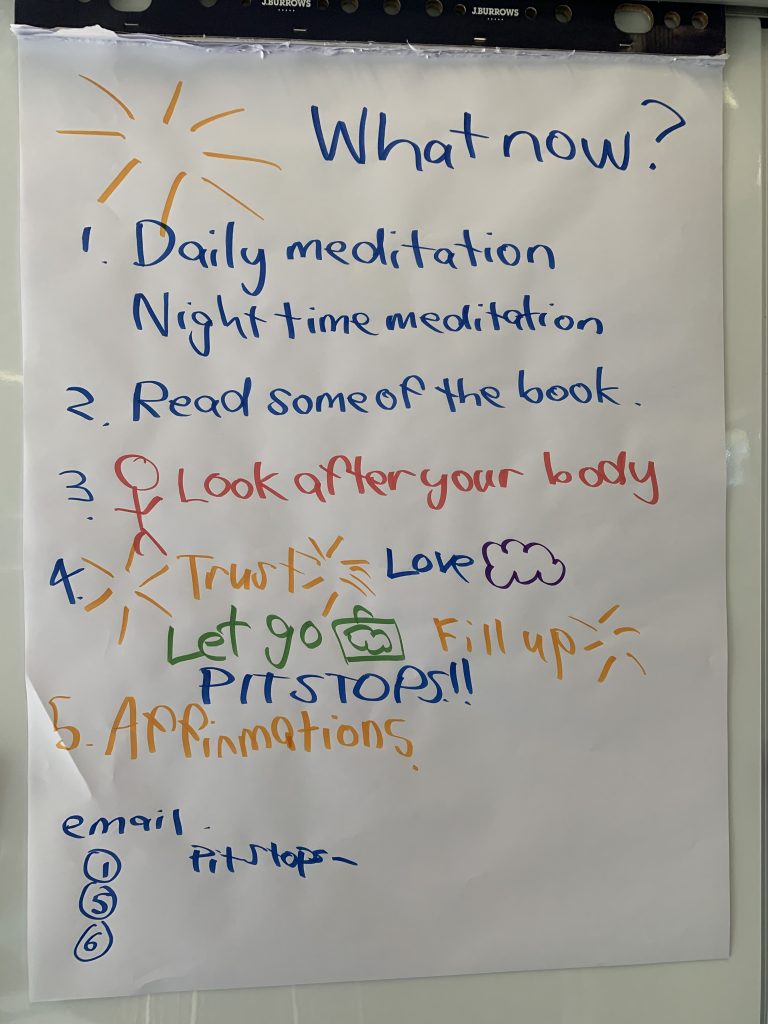 J.BURROWS
J.BURROWS
What now?
1. Daily meditation
Night time meditation
2. Read some of the book.
3. Look after your body
4. Trust Love
Let go Fill up
PITSTOPS!!
5. Affinmations.
email
1 Pitstops-
5
6